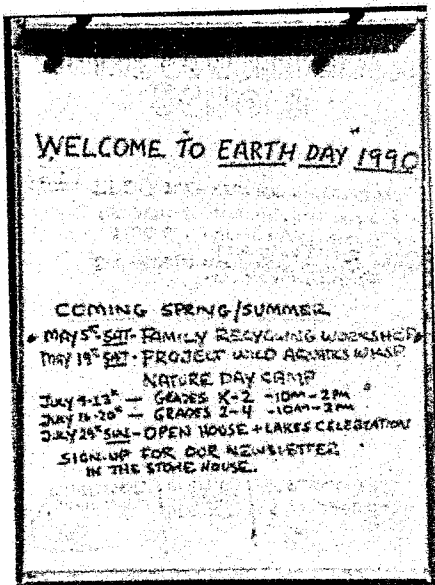 WELCOME TO EARTH DAY 1990
COMING SPRING/SUMMER
• MAY 5th SAT - FAMILY RECYCLING WORKSHOP
MAY 19th SAT - PROJECT WILD AQUATICS WKSP
NATURE DAY CAMP
JULY 9-13th — GRADES K-2 - 10AM - 2PM
JULY 16-20th — GRADES 2-4 - 10AM - 2PM
JULY 29th SUN - OPEN HOUSE + LAKES CELEBRATION
SIGN-UP FOR OUR NEWSLETTER
IN THE STONE HOUSE.